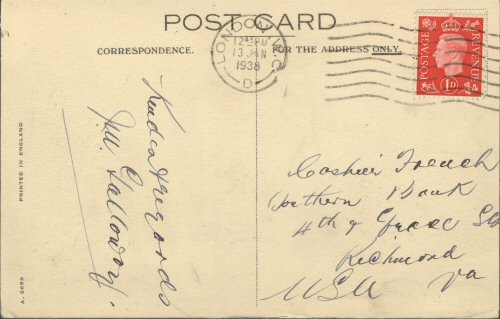 POST CARD
CORRESPONDENCE.
FOR THE ADDRESS ONLY.
LONDON
12 45 PM
13 JAN
1938
D
POSTAGE
REVENUE
1D
PRINTED IN ENGLAND
A. 2699
Kindest regards
Galloway.
Cashier French
Southern Bank
4th & Grace Sts
Richmond
USA Va